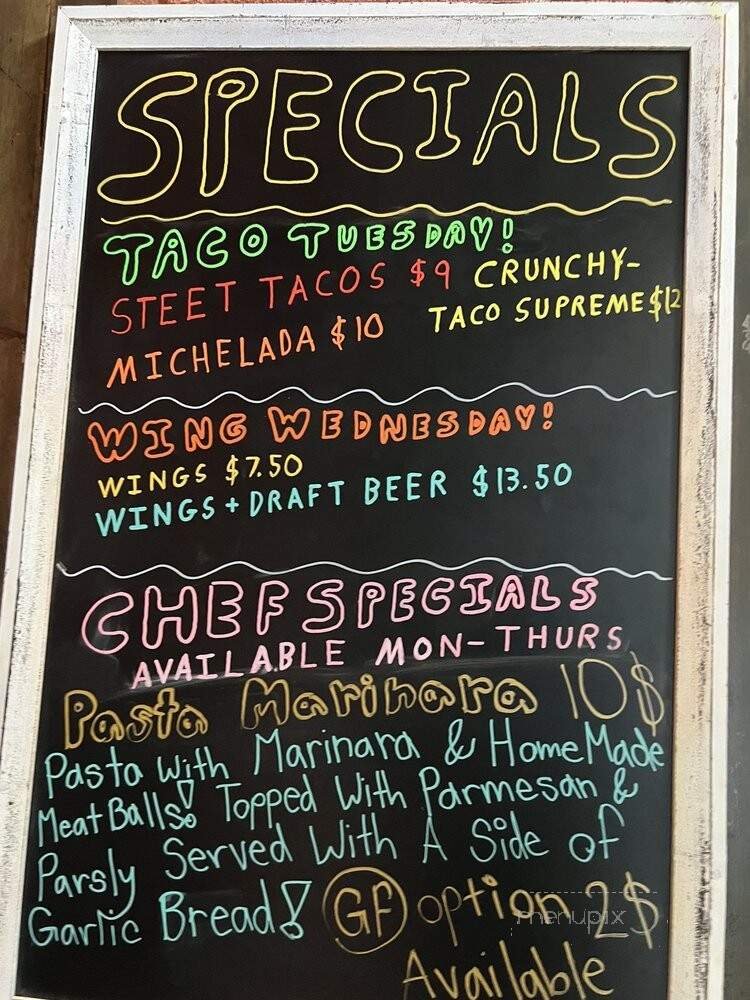 SPECIALS
TACO TUESDAY!
STEET TACOS $9 CRUNCHY-
TACO SUPREME $12
MICHELADA $10
WING WEDNESDAY!
WINGS $7.50
WINGS + DRAFT BEER $13.50
CHEF SPECIALS
AVAILABLE MON-THURS
Pasta Marinara 10$
Pasta with Marinara & HomeMade
Meat Balls! Topped With Parmesan &
Parsly Served With A Side of
Garlic Bread! GF option 2$
Available
menupix